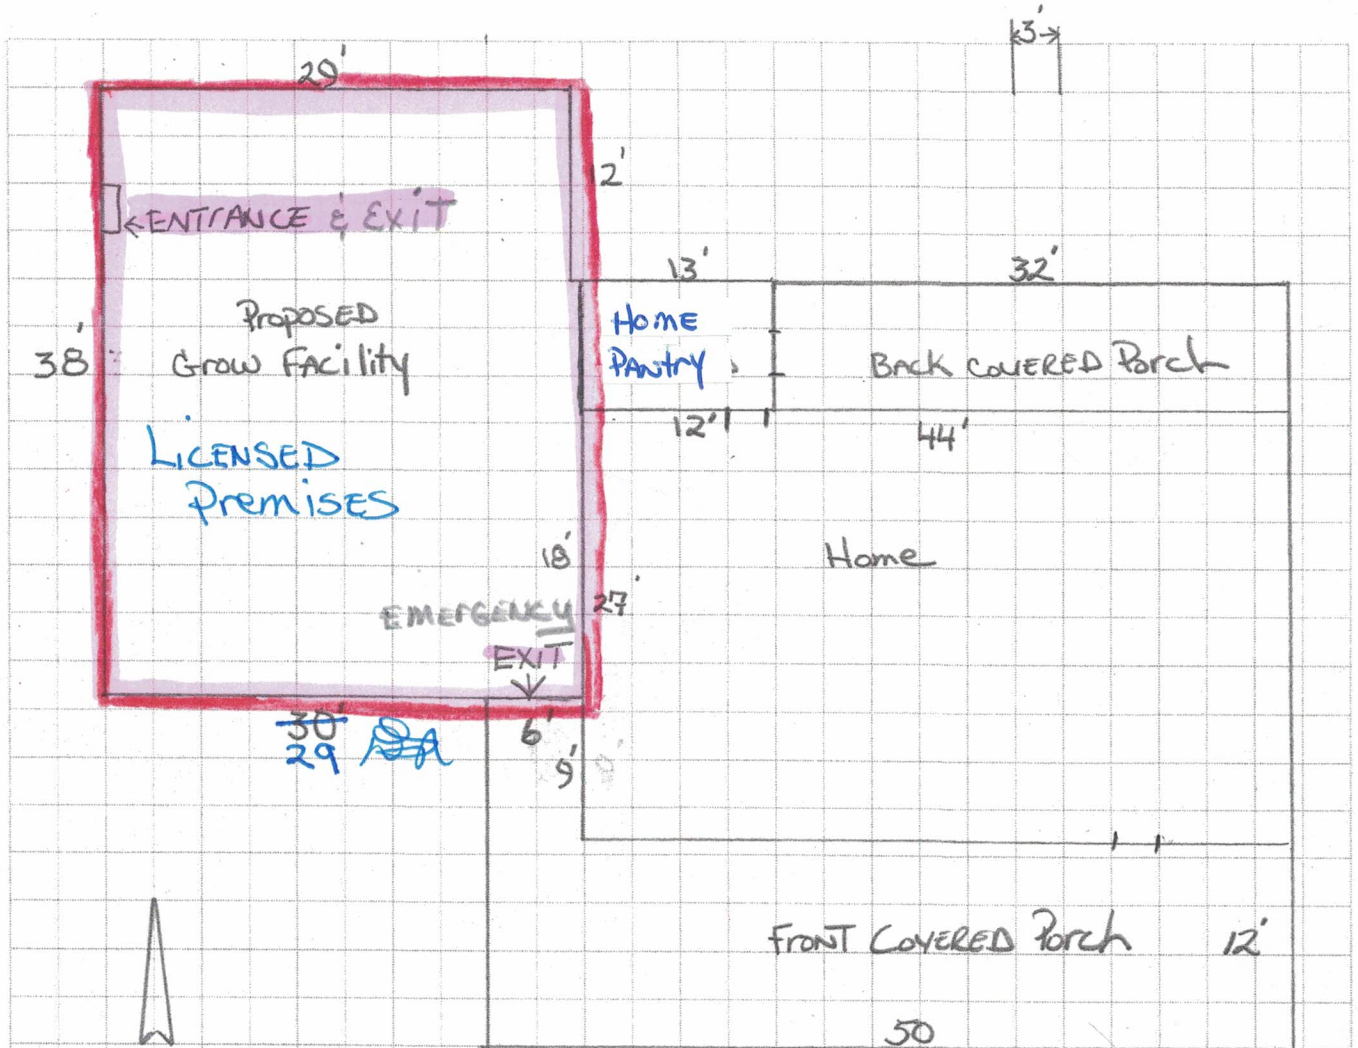 3'
29'
12'
←ENTRANCE & EXIT
13'
32'
Proposed
Grow Facility
38'
Home
Pantry
Back Covered Porch
12'
44'
Licensed
Premises
18'
Home
27'
EMERGENCY
EXIT
30'
29
6'
9'
Front Covered Porch
12'
50